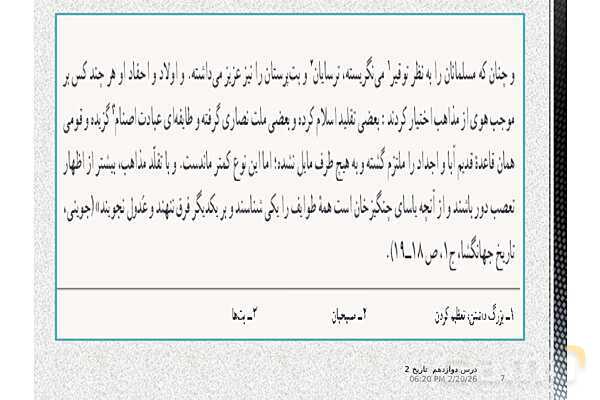 و چنان که مسلمانان را به نظر توقیر۱ می‌نگریسته، ترسایان۲ و بت‌پرستان را نیز عزیز می‌داشته. و اولاد و احفاد او هر چند کس بر
موجب هوی از مذاهب اختیار کردند : بعضی تقلید اسلام کرده و بعضی ملت نصاری گرفته و طایفه‌ای عبادت اصنام۳ گزیده و قومی
همان قاعدهٔ قدیم آبا و اجداد را ملتزم گشته و به هیچ طرف مایل نشده؛ اما این نوع کمتر مانده‌ست. و با تقلّد مذاهب، بیشتر از اظهار
تعصب دور باشند و از آنچه یاسای چنگیزخان است همهٔ طوایف را یکی شناسند و بر یکدیگر فرق ننهند و عُدول نجویند» (جوینی،
تاریخ جهانگشا، ج۱، ص ۱۸ــ۱۹).
۱ــ بزرگ داشتن، تعظیم کردن ۲ــ مسیحیان ۳ــ بت‌ها
درس دوازدهم تاریخ 2
06:20 PM 2/20/26 7